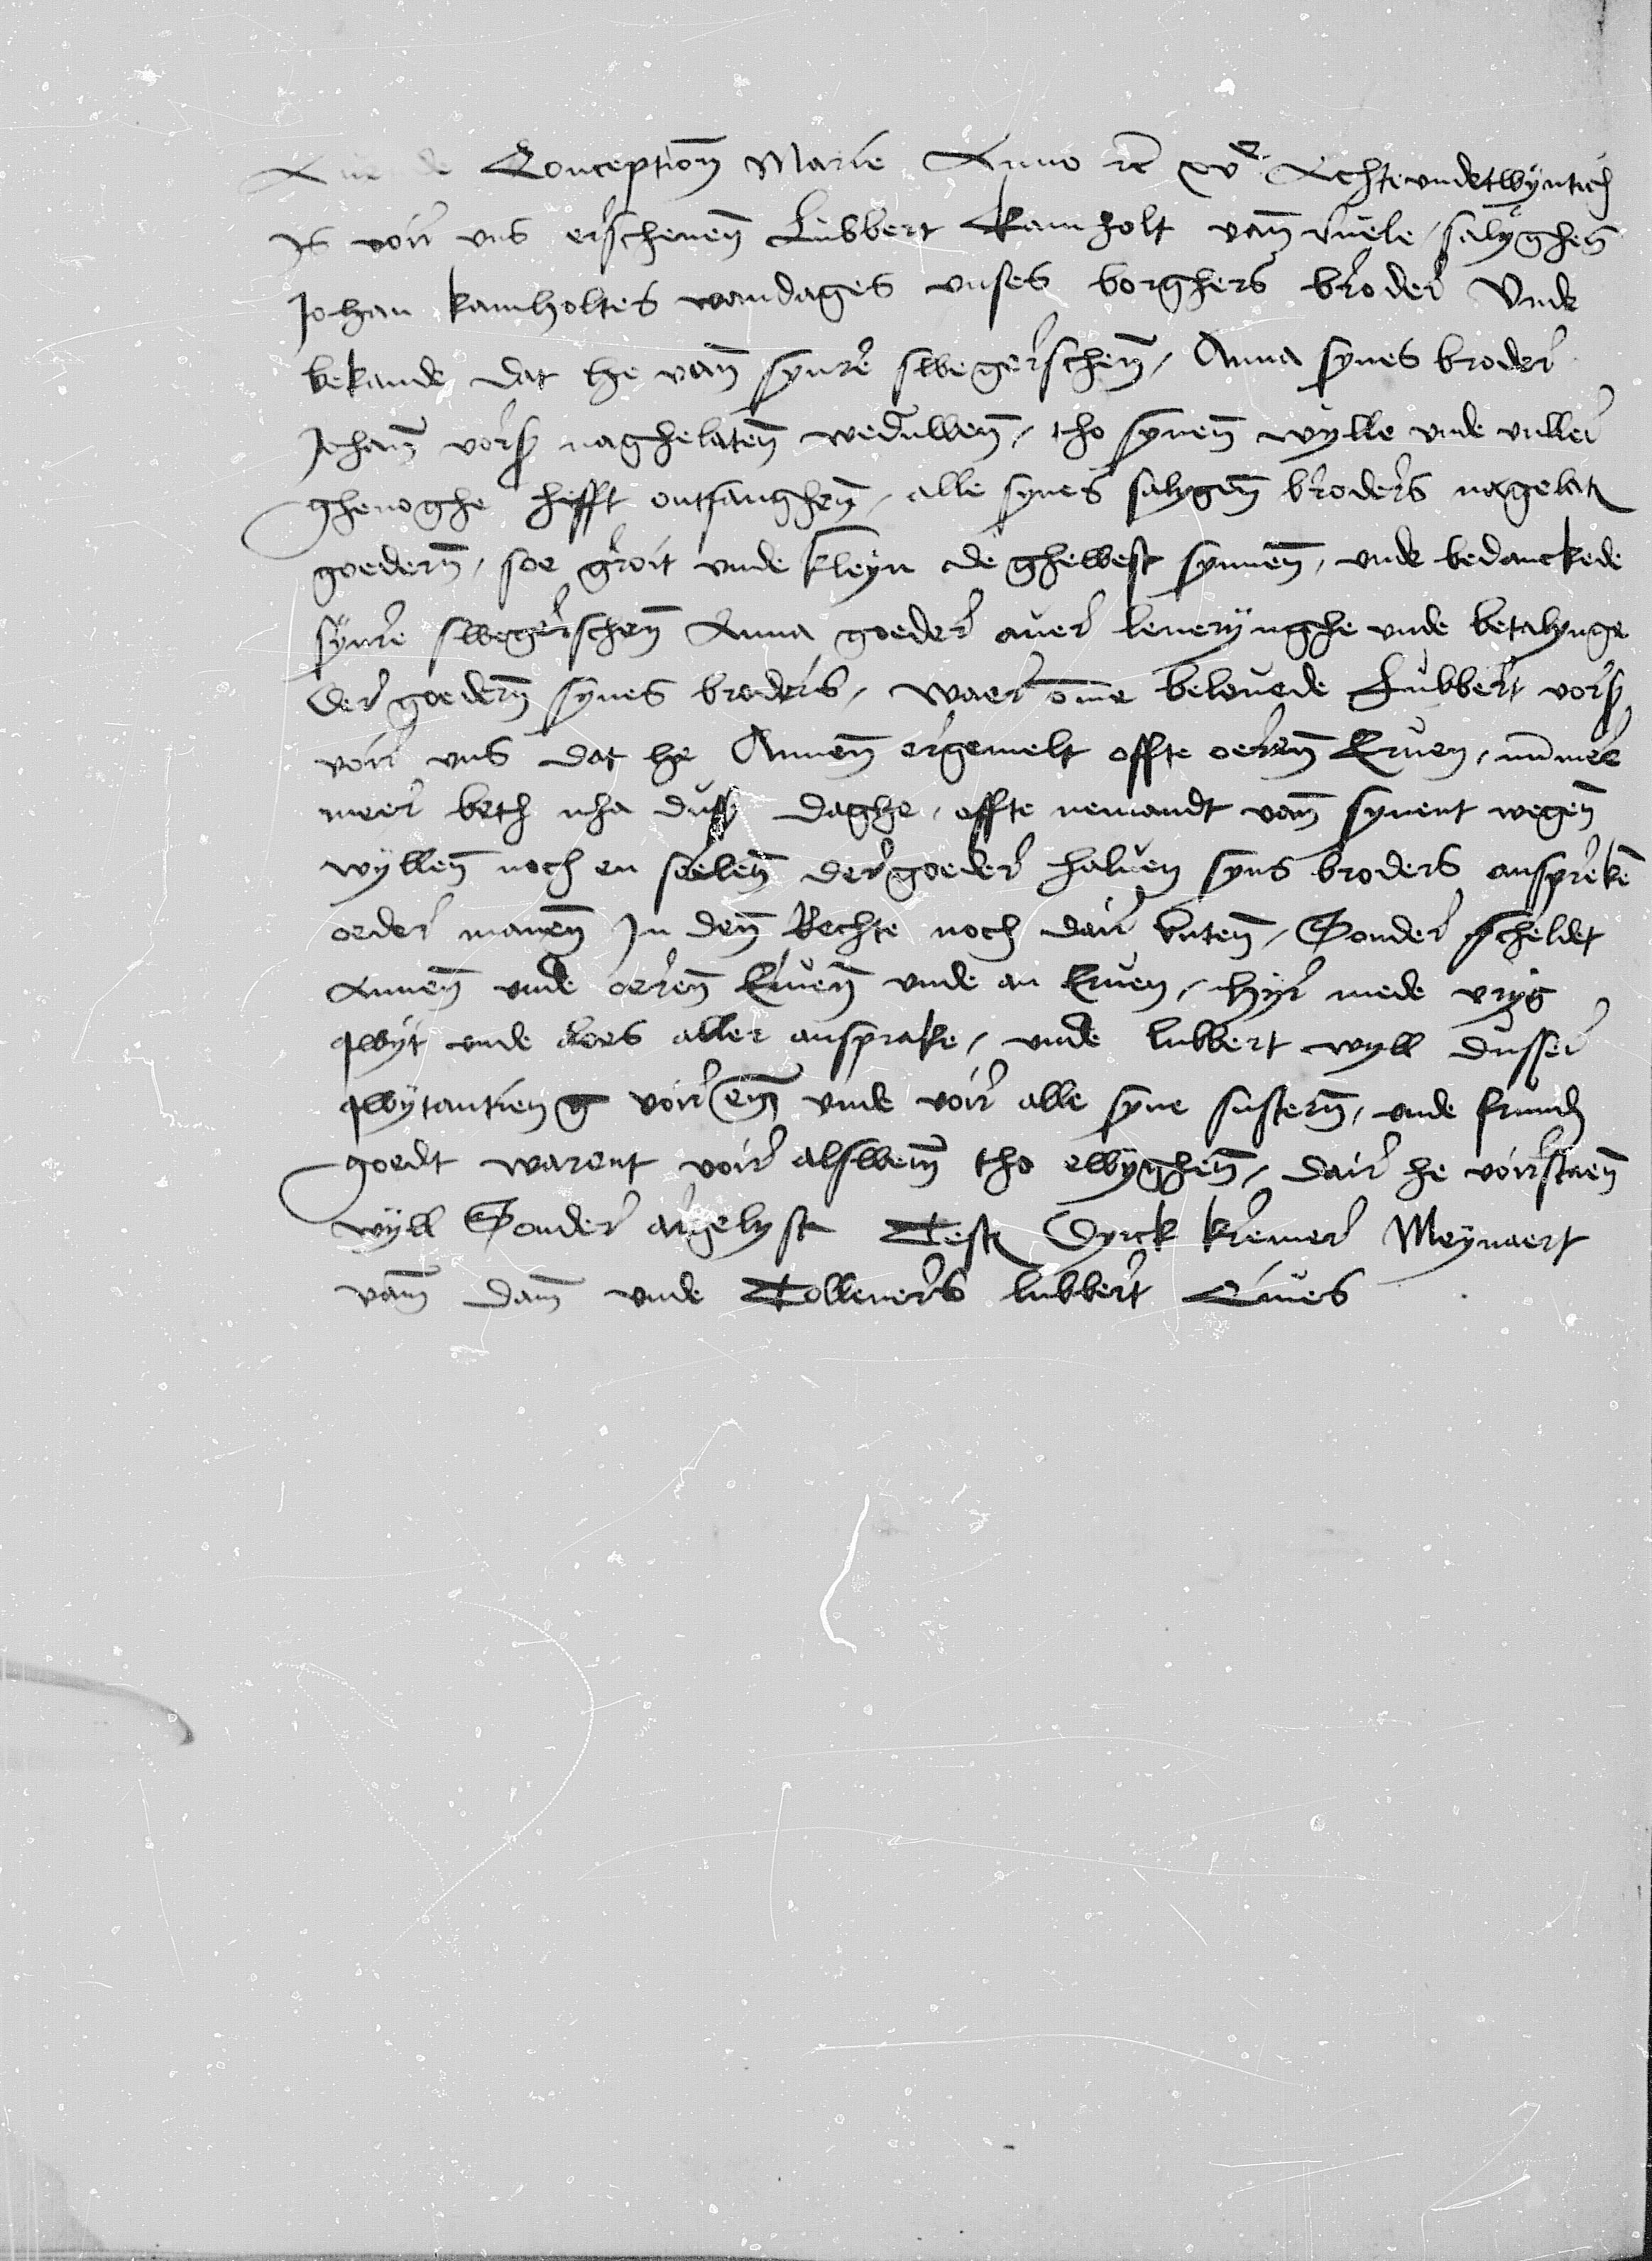 Auende Conception Marie Anno etc xvc Achteundetwyntich
Is voir uns erschenen Lubbert Kamholt van sweele salyghen
Johan kamholtes wandages unses borghers broder Unde
bekande dat he van synre swegerschen, Anna synes broder
Johan vorss naghelaten weduwen, tho synen wylle unde vuller
ghenoghe hefft ontfanghen, alle synes salygen broders nagelaten
goederen, soe groit unde kleyn de ghewest synnen, unde bedanckede
synre swegerschen Anna goeder auer leuerynghe unde betalynge
der goederen synes broders, waer omme belouede Lubbert vorss
voir uns dat he Annen ergemelt offte oeren Eruen, nummer
meer beth nha dusse daghe, offte nemandt van synent wegen
wyllen noch en soelen der goeder haluen syns broders anspreken
oeder manen In den Rechte noch dair buten, Sonder scheldet
Annen unde oeren Eruen unde an Eruen, hyr mede vryg
qwyt unde loes aller ansprake, unde lubbert wyll dusser
qwytantien voir em unde voir alle syne susteren, unde frunde
goedt warent voir alswem tho ewyghen, dair he voirstaen
wyll Sonder argelyst Testes Dyrck kremer Meynaert
vam dam unde Tolleners lubbert Eues